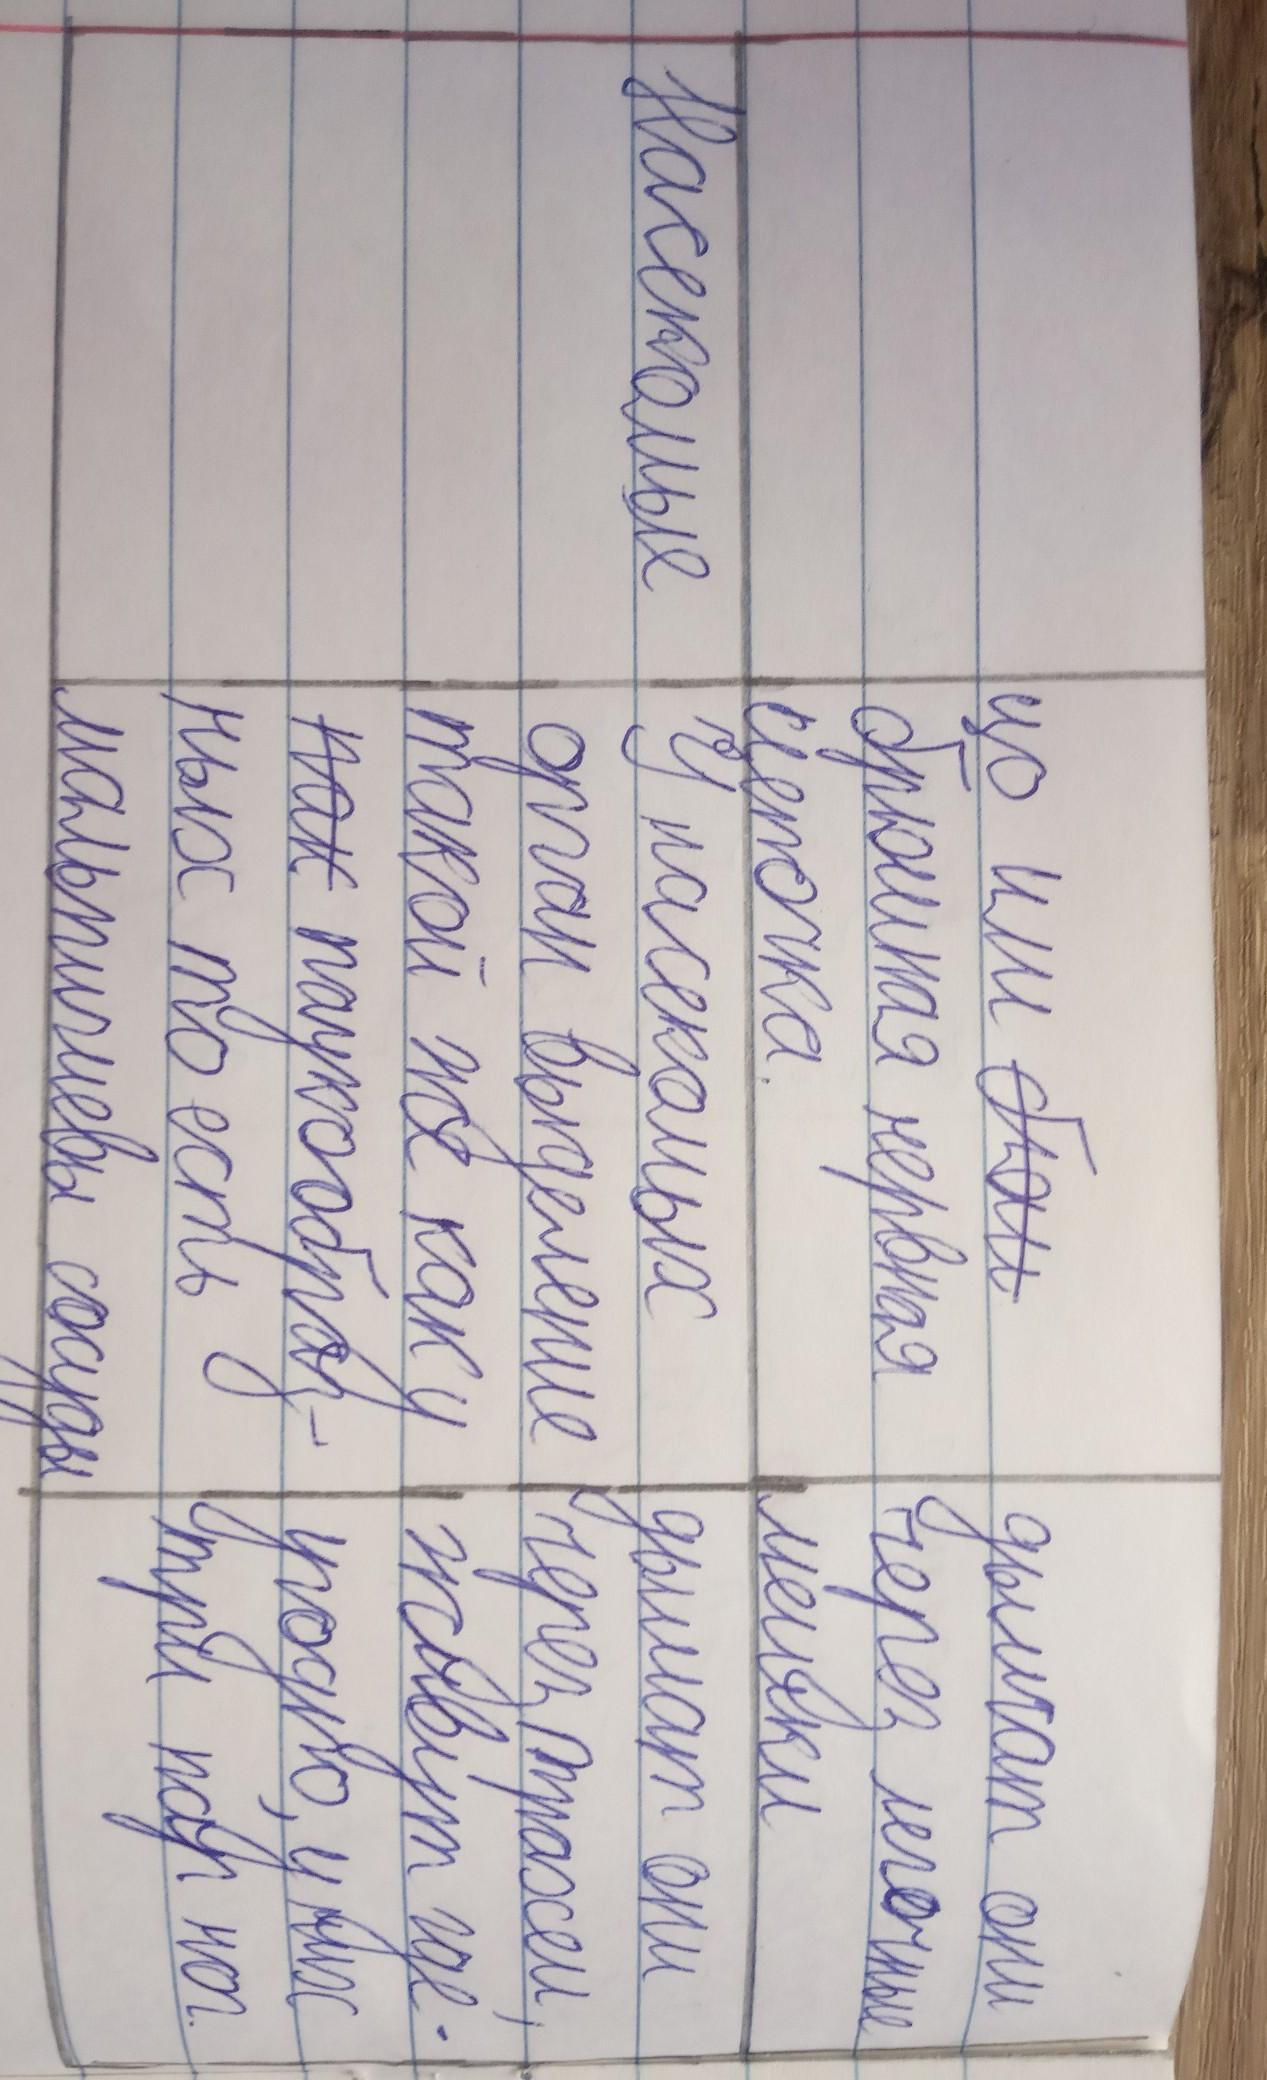 цо или
брюшная нервная
цепочка.
дышат они
через легочные
мешки
Насекомые
У насекомых
орган выделение
такой же как у
паукообраз-
ных то есть
мальпигиевы сосуды
дышат они
через трахеи,
живут где-
угодно, у них
три пар ног.